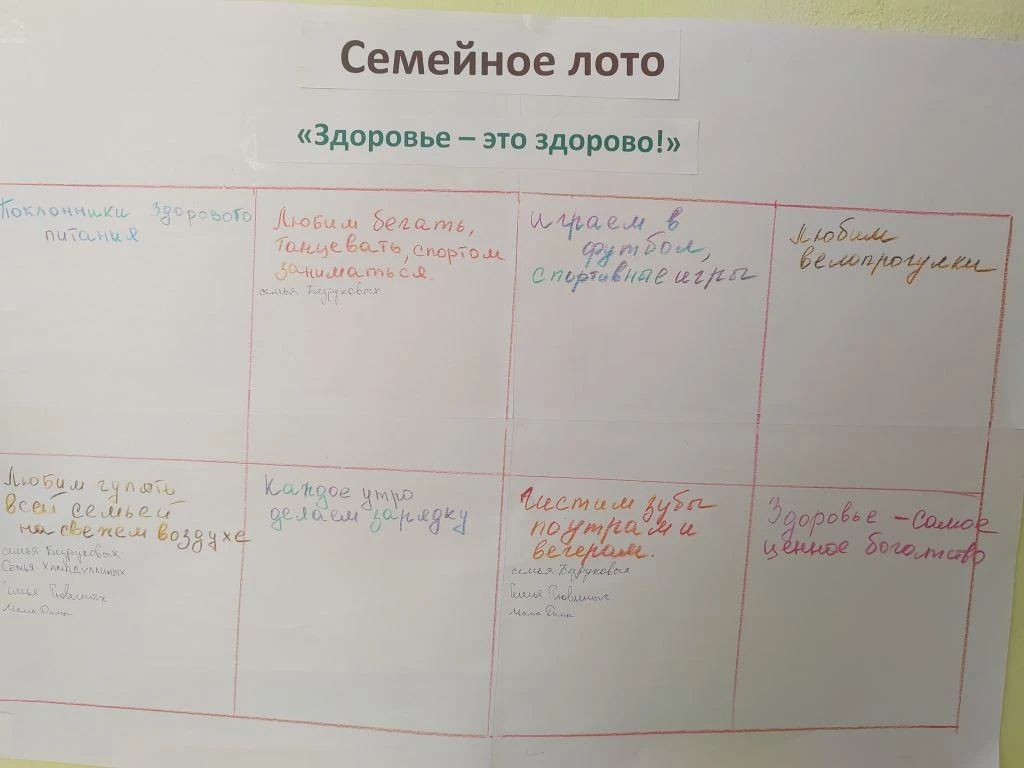 Семейное лото
«Здоровье – это здорово!»
Поклонники здорового
питания
Любим бегать,
танцевать, спортом
заниматься.
семья Безруковых
играем в
футбол,
спортивные игры
Любим
велопрогулки
Любим гулять
всей семьей
на свежем воздухе
семья Безруковых
Семья Хамадуллиных
Семья
Мама Дима
Каждое утро
делаем зарядку
Чистим зубы
по утрам и
вечерам.
семья Безруковых
Семья
Мама Дима
Здоровье – самое
ценное богатство